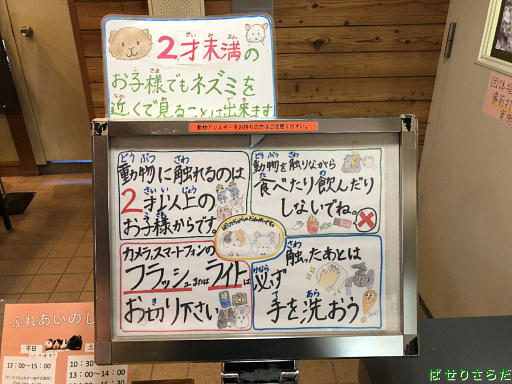 2才未満の
お子様でもネズミを
近くで見ることは出来ます
動物アレルギーをお持ちの方はご注意ください。
動物に触れるのは
2才以上の
お子様からです
動物を触りながら
食べたり飲んだり
しないでね。
カメラ、スマートフォンの
フラッシュまたはライトは
お切り下さい
触ったあとは
必ず
手を洗おう
ふれあいのし
平日
13:00〜15:00
10:30
13:00〜14:00
団体
ぱせりさらだ